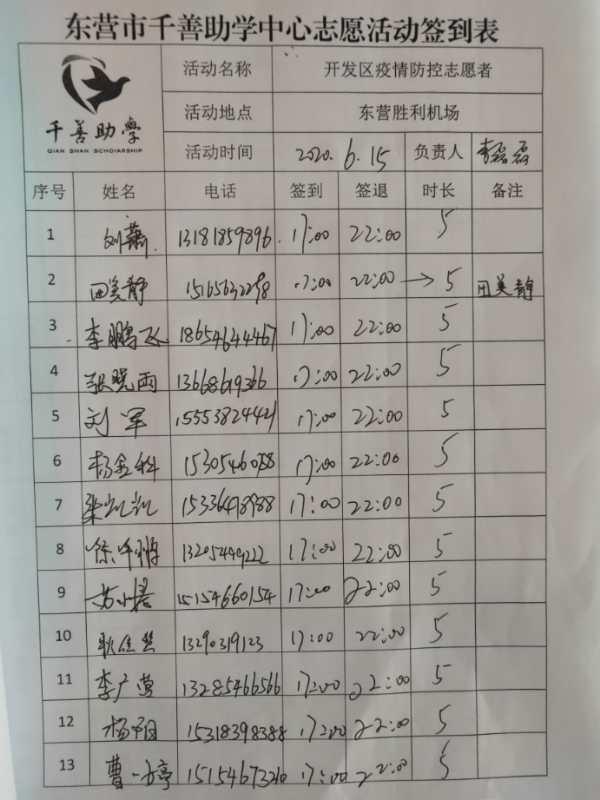 东营市千善助学中心志愿活动签到表
千善助学
QIAN SHAN SCHOLARSHIP
活动名称 开发区疫情防控志愿者
活动地点 东营胜利机场
活动时间 2020.6.15 负责人 李磊磊
序号 姓名 电话 签到 签退 时长 备注
1 刘萧 13181859896 17:00 22:00 5
2 田美静 17:00 22:00 → 5 田美静
3 李鹏飞 18654644467 17:00 22:00 5
4 张晓雨 17:00 22:00 5
5 刘军 17:00 22:00 5
6 杨金科 17:00 22:00 5
7 梁凯凯 17:00 22:00 5
8 17:00 22:00 5
9 15154660154 17:00 22:00 5
10 13290319123 17:00 22:00 5
11 李广莺 13285466566 17:00 22:00 5
12 杨阳 15318398388 17:00 22:00 5
13 曹一婷 17:00 22:00 5